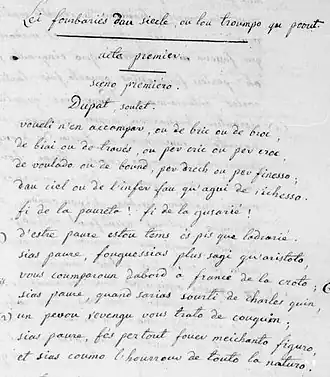 Lei fourbariés dau siecle, ou lou troumpo qu pourt.
acte premier.
sceno premiero.
Dupat, soulet.
voueli n'en accampar, ou de bric ou de broc,
de biai ou de travès, ou per eric ou per croc,
de voulado ou de bound, per drech ou per finesso;
dau ciel ou de l'infer fau qu'agui de richesso.
fi de la paureta! fi de la gusarié!
d'estre paure estou tems és pis que ladrarié.
sias paure, fouguessias plus sagi qu'aristoto,
vous coumparoun d'abord a francé de la croto;
sias paure, quand sarias sourti de charles quin,
un pevou revengu vous trato de couquin;
sias paure, fés pertout fouer meichanto figuro,
et sias coumo l'hourrour de touto la naturo.